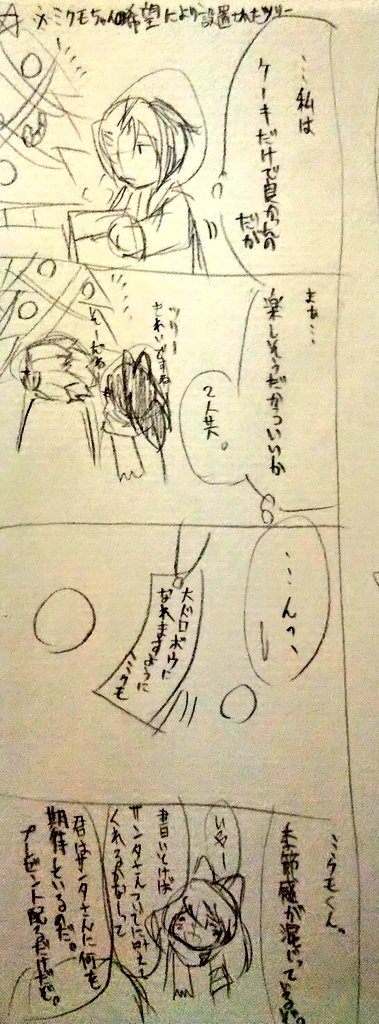 ※ミクモちゃんの希望により設置されたツリー
…私は
ケーキだけで良かったの
だが
まぁ…
楽しそうだからいいか
2人共。
ツリー
きれいですね
そーだね
…んっ、
大ドロボウに
なれますように
ミクモ
ミクモくん。
季節感が混じっているぞ。
いやー
書いとけば
サンタさんついでに叶えて
くれるかなーって
君はサンタさんに何を
期待しているのだ。
プレゼント配るだけだぞ。